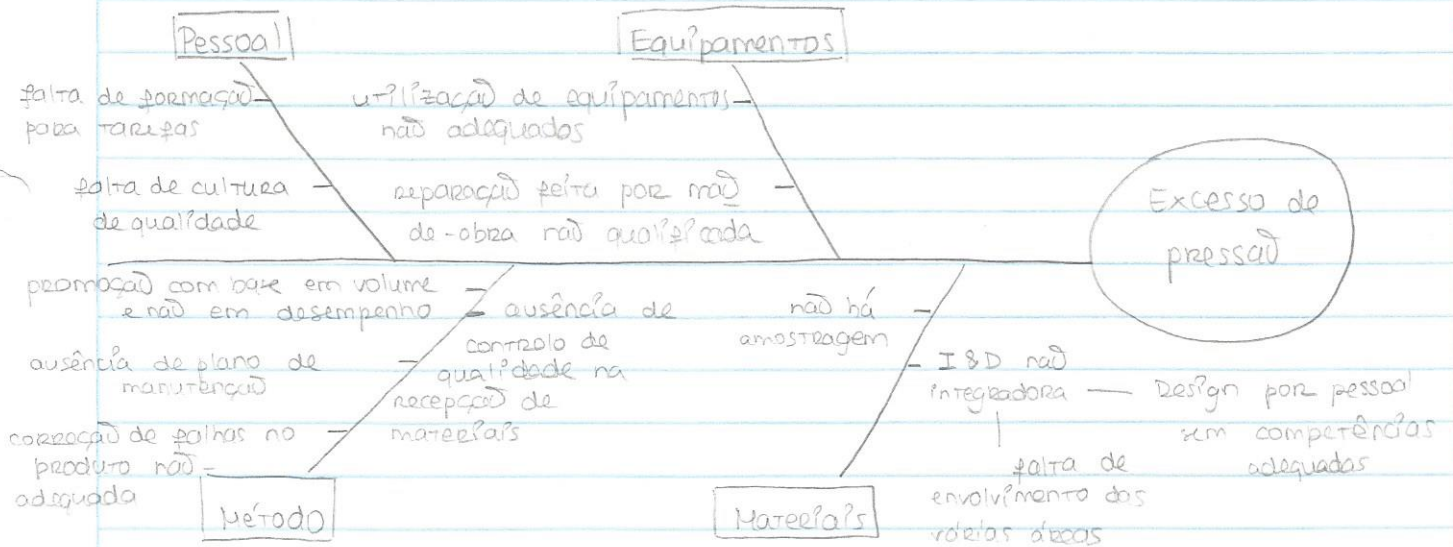 Pessoal
falta de formação
para tarefas
falta de cultura
de qualidade
Equipamentos
utilização de equipamentos
não adequados
reparação feita por mão
de-obra não qualificada
Excesso de
pressão
promoção com base em volume
e não em desempenho
ausência de plano de
manutenção
correção de falhas no
produto não
adequada
ausência de
controlo de
qualidade na
recepção de
materiais
Método
não há
amostragem
I&D não
integradora
Design por pessoal
sem competências
adequadas
falta de
envolvimento das
várias áreas
Materiais